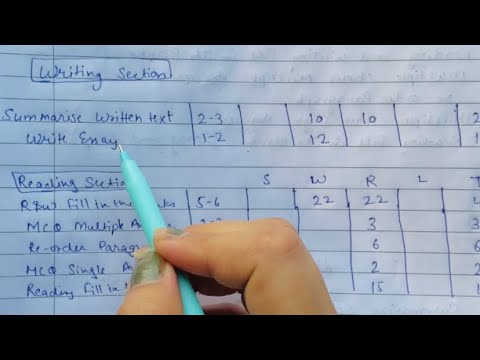 Writing Section
Summarise Written text 2-3 10 10 2
Write Essay 1-2 12
Reading Section S W R L T
R&W Fill in the 5-6 22 22 4
MCQ Multiple 3
Re-order Parag 6
MCQ Single 2
Reading Fill in 15 1